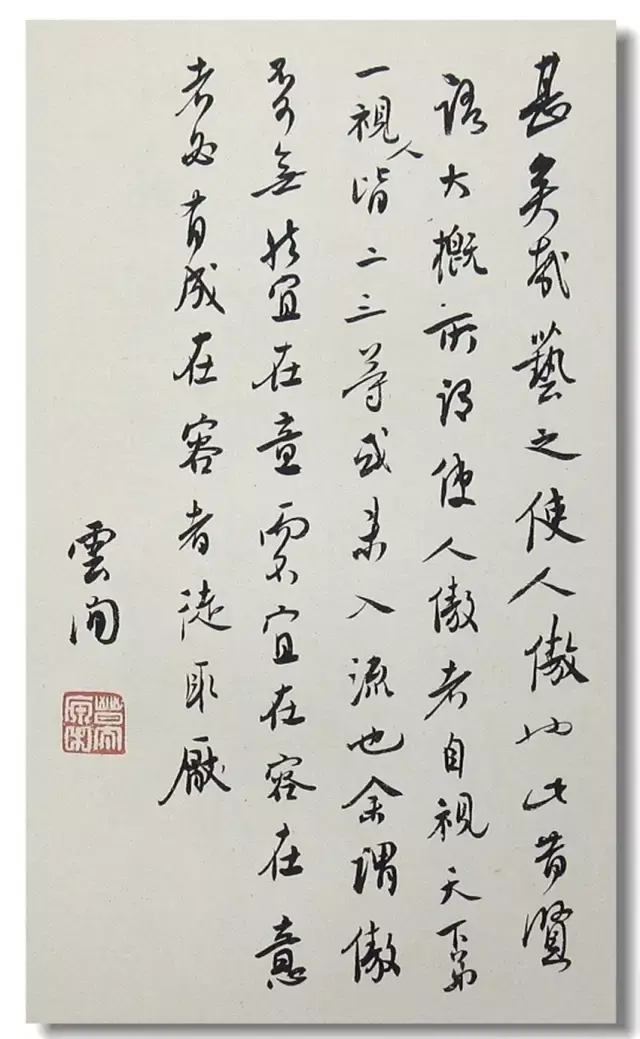 甚矣哉藝之使人傲也此昔賢
語大概所謂使人傲者自視天下第
一視人皆二三等或未入流也余謂傲
不可無然宜在意而不宜在容在意
者必有成在容者徒取厭
雲洵